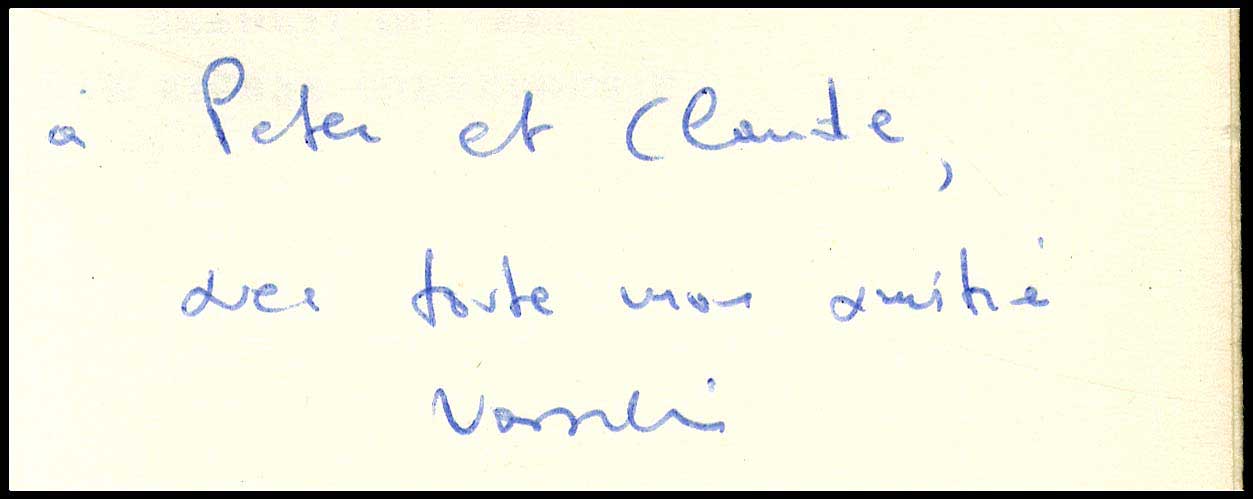 à Peter et Claude,
avec toute mon amitié
Vassilis